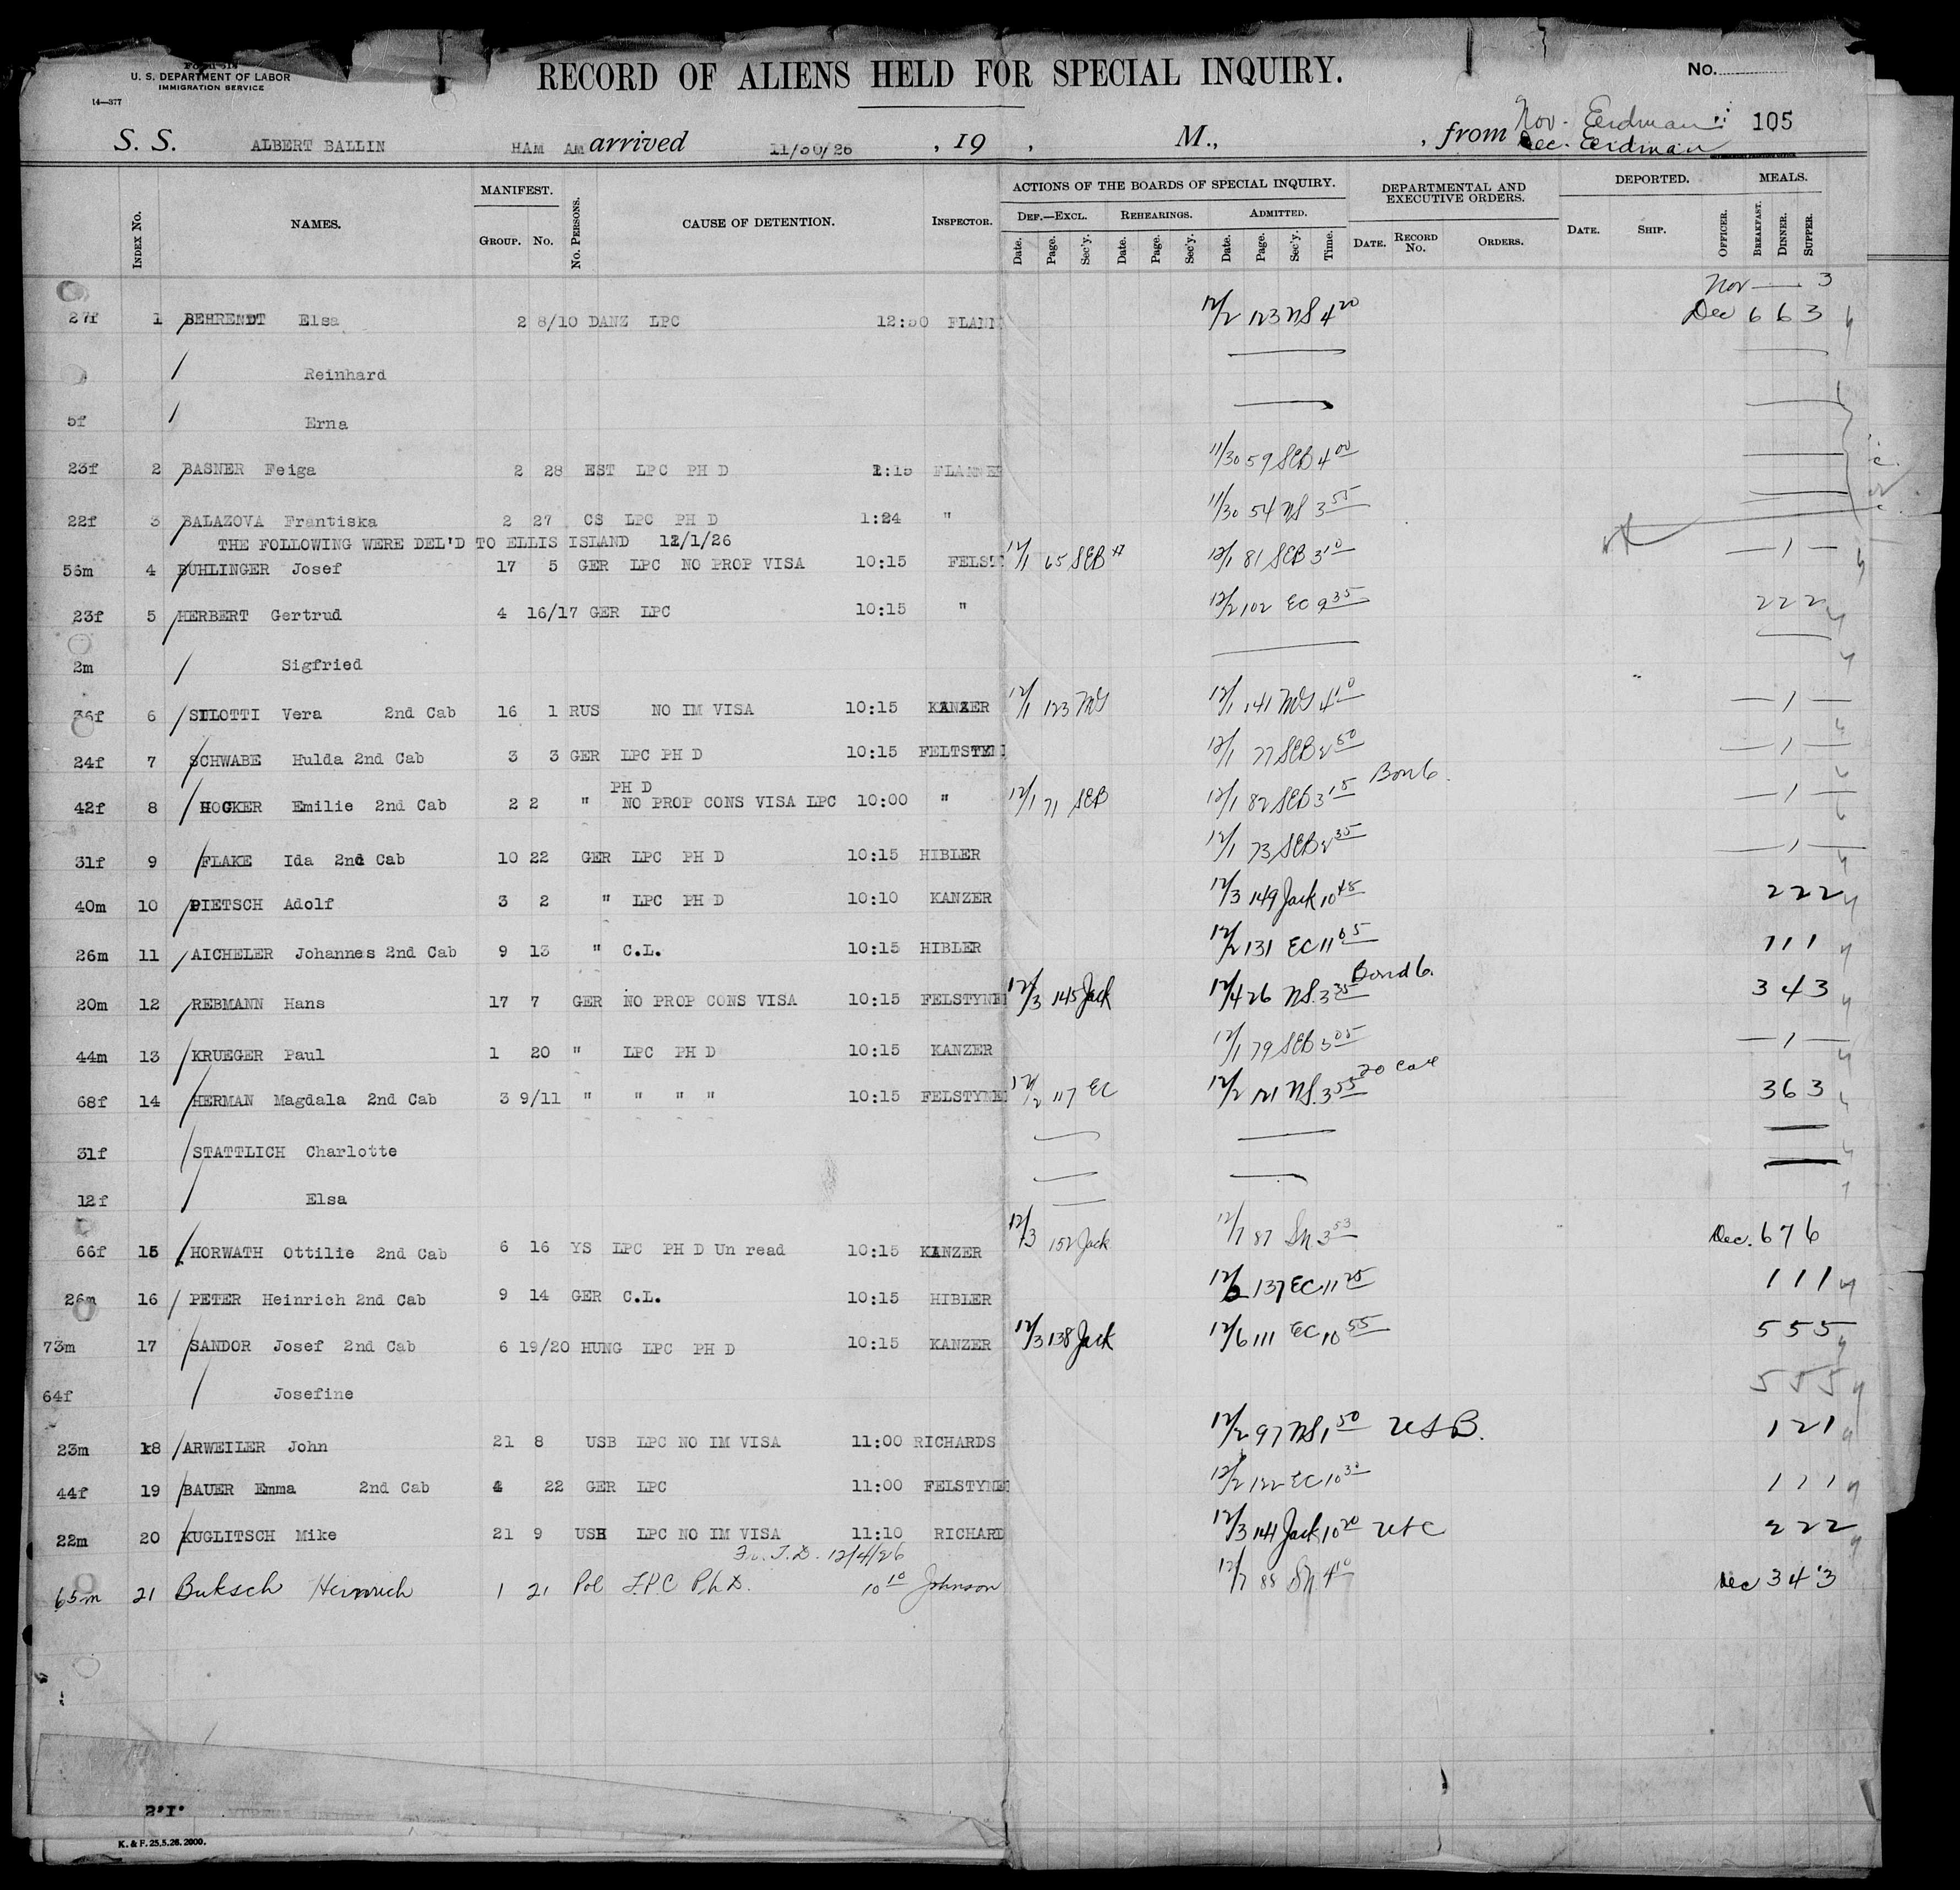 Form 518
U. S. DEPARTMENT OF LABOR
IMMIGRATION SERVICE
14—377
RECORD OF ALIENS HELD FOR SPECIAL INQUIRY.
No.
S. S. ALBERT BALLIN HAM AM arrived 11/30/26 , 19 , M., , from Nov. Erdman 105
Dec. Erdman
INDEX No. NAMES. MANIFEST. GROUP. No. No. PERSONS. CAUSE OF DETENTION. INSPECTOR. ACTIONS OF THE BOARDS OF SPECIAL INQUIRY. DEF.—EXCL. Date. Page. Sec'y. REHEARINGS. Date. Page. Sec'y. ADMITTED. Date. Page. Sec'y. Time. DEPARTMENTAL AND EXECUTIVE ORDERS. DATE. RECORD No. ORDERS. DEPORTED. DATE. SHIP. MEALS. OFFICER. BREAKFAST. DINNER. SUPPER.
Nov — 3
27f 1 BEHRENDT Elsa 2 8/10 DANZ LPC 12:50 FLANN 12/2 123 NS 4 20 Dec 6 6 3
Reinhard
5f Erna
23f 2 BASNER Feiga 2 28 EST LPC PH D 1:15 FLANNER 11/30 59 SEB 4 00
22f 3 BALAZOVA Frantiska 2 27 CS LPC PH D 1:24 " 11/30 54 NS 3 55
THE FOLLOWING WERE DEL'D TO ELLIS ISLAND 12/1/26
56m 4 BUHLINGER Josef 17 5 GER LPC NO PROP VISA 10:15 FELST 12/1 65 SEB 12/1 81 SEB 3 10 — 1 —
23f 5 HERBERT Gertrud 4 16/17 GER LPC 10:15 " 12/2 102 EC 9 35 2 2 2
2m Sigfried
36f 6 SILOTTI Vera 2nd Cab 16 1 RUS NO IM VISA 10:15 KANZER 12/1 123 MG 12/1 141 MG 4 10 — 1 —
24f 7 SCHWABE Hulda 2nd Cab 3 3 GER LPC PH D 10:15 FELTSTYN 12/1 77 SEB 2 50 — 1 —
PH D
42f 8 HOCKER Emilie 2nd Cab 2 2 " NO PROP CONS VISA LPC 10:00 " 12/1 71 SEB 12/1 82 SEB 3 15 Bond 6. — 1 —
31f 9 FLAKE Ida 2nd Cab 10 22 GER LPC PH D 10:15 HIBLER 12/1 73 SEB 2 35 — 1 —
40m 10 PIETSCH Adolf 3 2 " LPC PH D 10:10 KANZER 12/3 149 Jack 10 45 2 2 2
26m 11 AICHELER Johannes 2nd Cab 9 13 " C.L. 10:15 HIBLER 12/2 131 EC 11 05 1 1 1
20m 12 REBMANN Hans 17 7 GER NO PROP CONS VISA 10:15 FELSTYNE 12/3 145 Jack 12/4 26 NS. 3 35 Bond 6. 3 4 3
44m 13 KRUEGER Paul 1 20 " LPC PH D 10:15 KANZER 12/1 79 SEB 3 05 — 1 —
68f 14 HERMAN Magdala 2nd Cab 3 9/11 " " " " 10:15 FELSTYNE 12/2 117 EC 12/2 121 NS. 3 55 3 6 3
31f STATTLICH Charlotte
12f Elsa
66f 15 HORWATH Ottilie 2nd Cab 6 16 YS LPC PH D Un read 10:15 KANZER 12/3 152 Jack 12/7 87 3 53 Dec. 6 7 6
26m 16 PETER Heinrich 2nd Cab 9 14 GER C.L. 10:15 HIBLER 12/2 137 EC 11 25 1 1 1
73m 17 SANDOR Josef 2nd Cab 6 19/20 HUNG LPC PH D 10:15 KANZER 12/3 138 Jack 12/6 111 EC 10 55 5 5 5
64f Josefine 5 5 5
23m 18 ARWEILER John 21 8 USB LPC NO IM VISA 11:00 RICHARDS 12/2 97 NS 1 50 USB. 1 2 1
44f 19 BAUER Emma 2nd Cab 4 22 GER LPC 11:00 FELSTYNE 12/2 122 EC 10 30 1 1 1
22m 20 KUGLITSCH Mike 21 9 USH LPC NO IM VISA 11:10 RICHARD 12/3 141 Jack 10 20 USC 2 2 2
Fr. T.D. 12/4/26
65m 21 Buksch Heinrich 1 21 Pol LPC Ph D. 10 10 Johnson 12/7 88 4 10 Dec 3 4 3
S.I.
K. & F. 25.5.26. 2000.